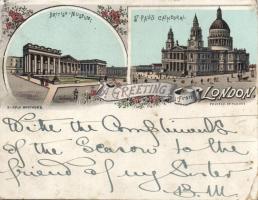 BRITISH MUSEUM.
ST PAULS CATHEDRAL.
A GREETING from LONDON
With the Compliments
of the Season to the
friend of my Sister
B. M.